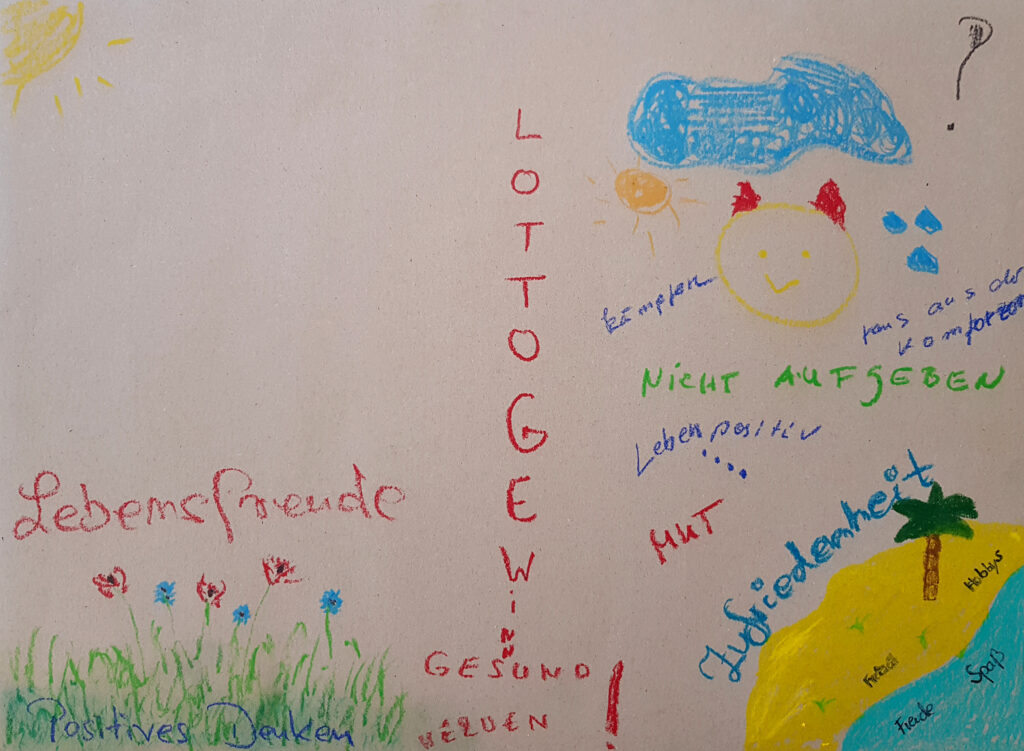 ?
LOTTOGEWiNN
kämpfen
raus aus der
Komfortzon
NicHT AUFGEBEN
Leben positiv
....
MUT
Lebensfreude
Zufriedenheit
Hobbys
Freizeit
Spaß
Freude
GESUND
WERDEN !
Positives Denken